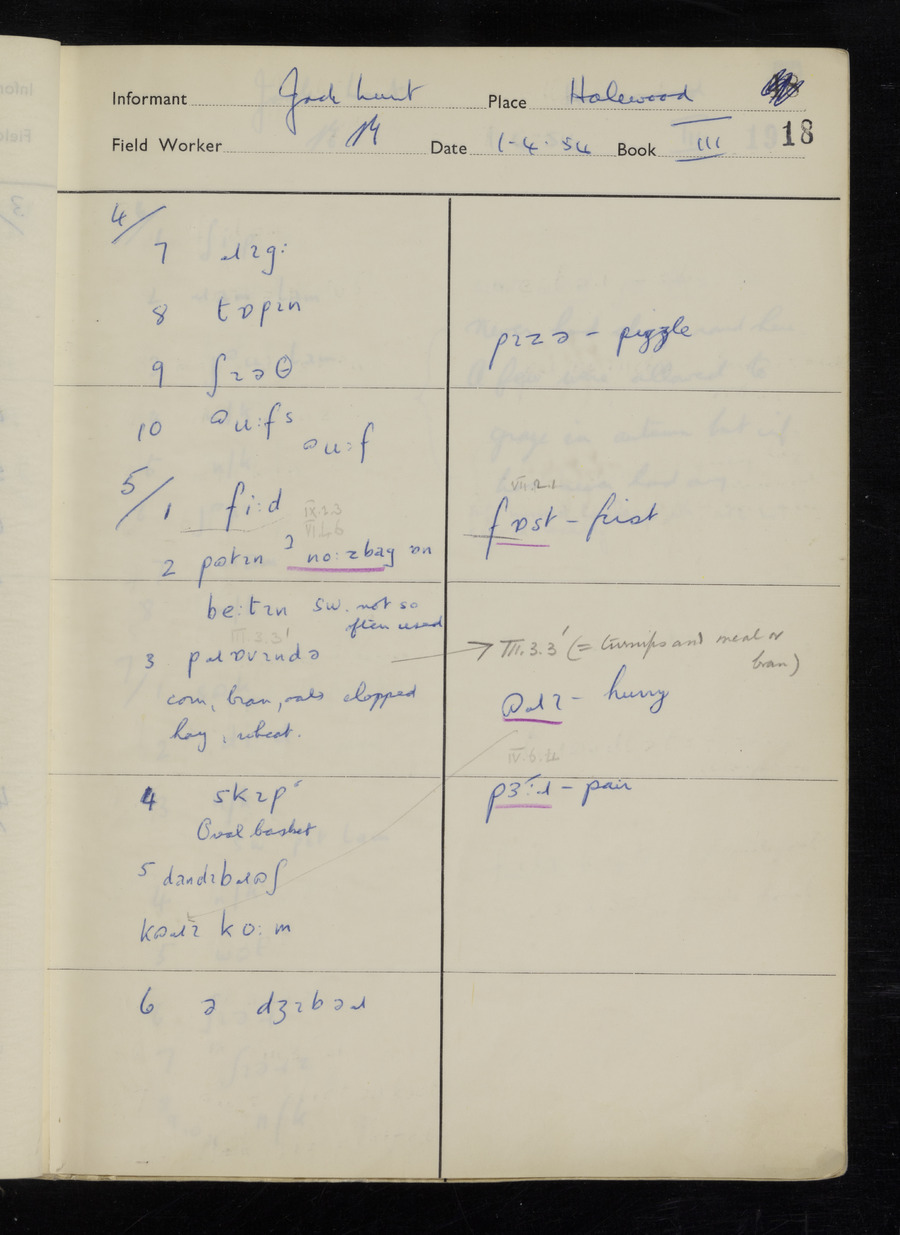 Informant Jack Hunt Place Halewood
18
Field Worker Date 1-4-54 Book III
4/
7 ɹɪgɪ
8 tɒpɪn
9 ʃɪəθ
pɪzə - pizzle
10 ɷu:fs
ɷu:f
5/1 fi:d
IX.3.3
VI.4.6
VII.2.1
fɒst - first
2 pɷtɪn ʾ no:zbag ɒn
be:tɪn SW. not so
often used
III.3.3'
3 pɹɒvɪndə → III.3.3' (= turnips and meal or
bran)
corn, bran, oats chopped
hay, wheat.
ɷɹɪ - hurry
IV.6.4
4 skɪp
Oval basket
pɜ:ɹ - pair
5 dandɪbɹɷʃ
kɷɹɪ ko:m
6 ə dʒɪbəɹ